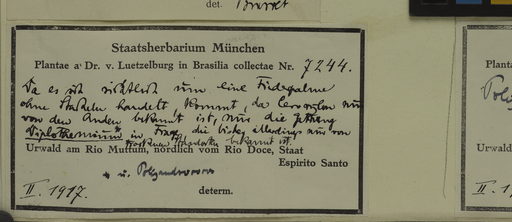 det. Burret
Staatsherbarium München
Plantae a Dr. v. Luetzelburg in Brasilia collectae Nr. 7244.
Da es sich sichtlich um eine Fiederpalme
ohne Stacheln handelt, kommt, da Ceroxylon nur
von den Anden bekannt ist, nur die Gattung
Diplothemium in Frage, die bisher allerdings nur von
trockenen Standorten bekannt ist.
Urwald am Rio Mutum, nördlich vom Rio Doce, Staat
Espirito Santo
u. Polyandrococos
II. 1917.
determ.
Planta
Poly
Urwald
II. 1